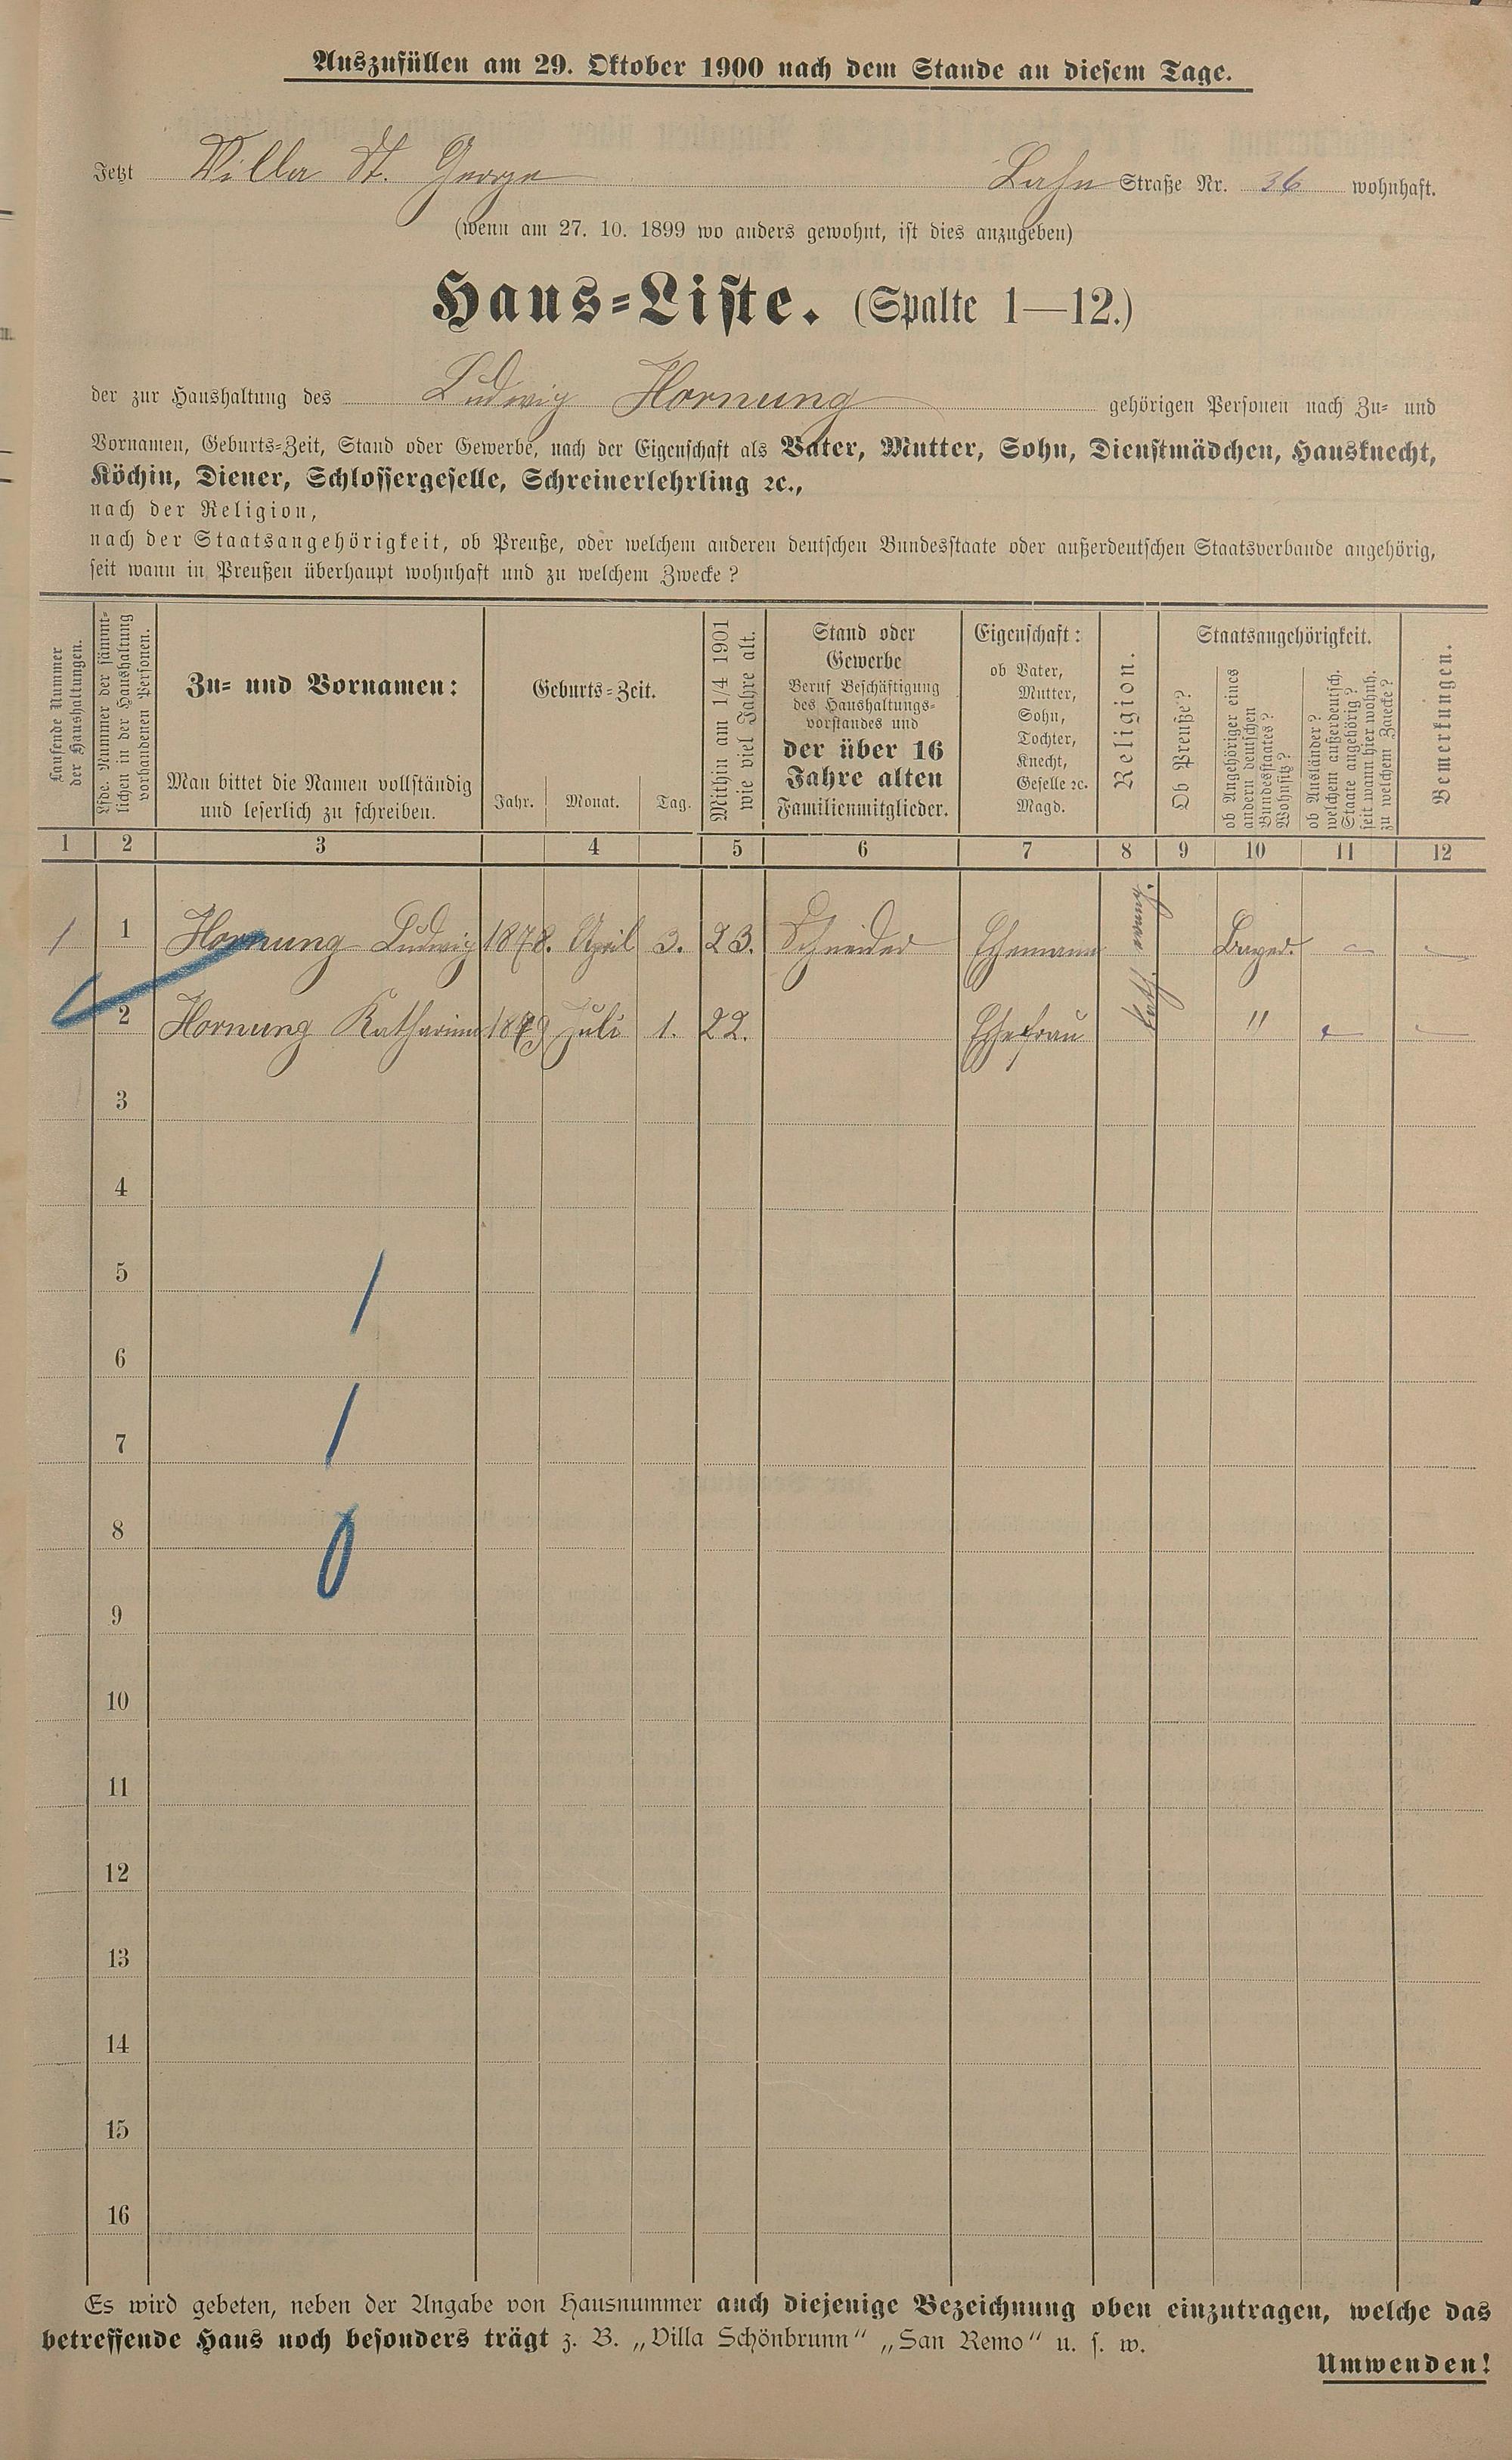 Auszufüllen am 29. Oktober 1900 nach dem Stande an diesem Tage.
Jetzt Villa St. George Lahn Straße Nr. 36 wohnhaft.
(wenn am 27. 10. 1899 wo anders gewohnt, ist dies anzugeben)
Haus-Liste. (Spalte 1—12.)
der zur Haushaltung des Ludwig Hornung gehörigen Personen nach Zu- und
Vornamen, Geburts-Zeit, Stand oder Gewerbe, nach der Eigenschaft als Vater, Mutter, Sohn, Dienstmädchen, Hausknecht,
Köchin, Diener, Schlossergeselle, Schreinerlehrling ꝛc.,
nach der Religion,
nach der Staatsangehörigkeit, ob Preuße, oder welchem anderen deutschen Bundesstaate oder außerdeutschen Staatsverbande angehörig,
seit wann in Preußen überhaupt wohnhaft und zu welchem Zwecke?
Laufende Nummer
der Haushaltungen.
Lfde. Nummer der sämmt-
lichen in der Haushaltung
vorhandenen Personen.
Zu- und Vornamen:
Man bittet die Namen vollständig
und leserlich zu schreiben.
Geburts-Zeit.
Jahr. Monat. Tag.
Mithin am 1/4 1901
wie viel Jahre alt.
Stand oder
Gewerbe
Beruf Beschäftigung
des Haushaltungs-
vorstandes und
der über 16
Jahre alten
Familienmitglieder.
Eigenschaft:
ob Vater,
Mutter,
Sohn,
Tochter,
Knecht,
Geselle ꝛc.
Magd.
Religion.
Staatsangehörigkeit.
Ob Preuße?
ob Angehöriger eines
andern deutschen
Bundesstaates?
Wohnsitz?
ob Ausländer?
welchem außerdeutsch.
Staate angehörig?
seit wann hier wohnh.
zu welchem Zwecke?
Bemerkungen.
1 2 3 4 5 6 7 8 9 10 11 12
1 1 Hornung Ludwig 1878. April 3. 23. Schneider Ehemann evang. Bayer. — —
2 Hornung Katharina 1879 Juli 1. 22. Ehefrau kath. " — —
3
4
5
6
7
8
9
10
11
12
13
14
15
16
Es wird gebeten, neben der Angabe von Hausnummer auch diejenige Bezeichnung oben einzutragen, welche das
betreffende Haus noch besonders trägt z. B. „Villa Schönbrunn“ „San Remo“ u. s. w.
Umwenden!